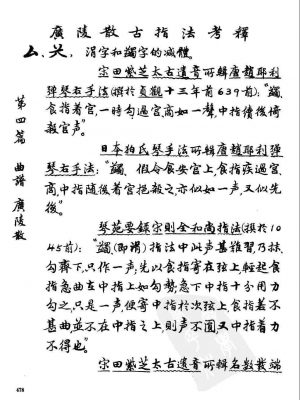 廣陵散古指法考釋
厶、犬，涓字和蠲字的减體。
宋田紫芝太古遺音所輯唐趙耶利
彈琴右手法(撰於貞觀十三年前639前)："蠲，
食指着宫，一時勾過宫商如一聲，中指續後倚
報宫聲。"
日本狛氏琴手法所輯唐趙耶利彈
琴右手法："蠲，假令食安宫上食指疾過宫、
商，中指隨後著宫挹報之亦似如一声，又似先
後。"
琴苑要錄宋則全和尚指法(撰於10
45前)："蠲(即涓)指法中此声甚難習，乃抹、
勾齊下，只作一声；先以食指寄在弦上，輕起食
指急曲在中指上如勾勢，急下中指十分用力
勾之，只是一声，便寄中指於次弦上，食指若不
甚曲，並不在中指之上則声不圓又中指着力
不得也。"
宋田紫芝太古遺音所輯名數發端
第四篇 曲譜 廣陵散
478